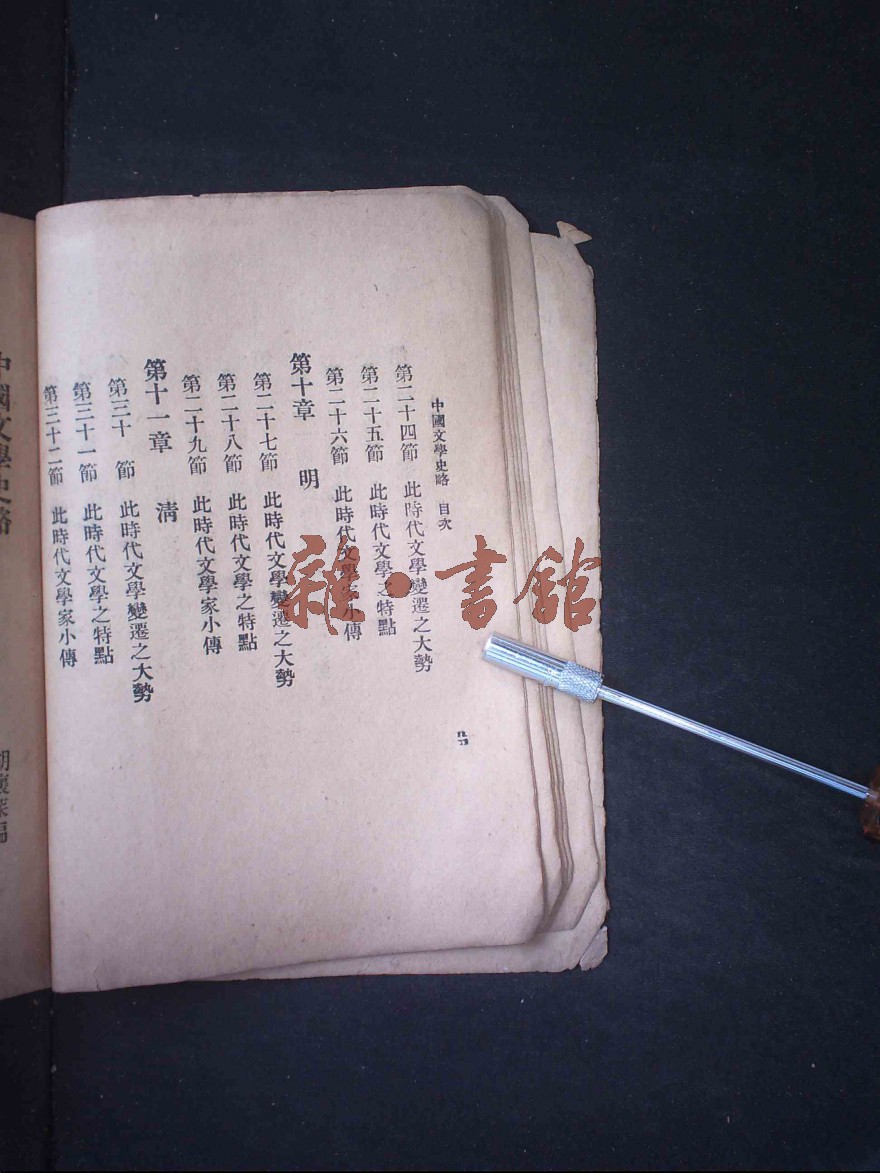 中國文學史略 目次
第二十四節 此時代文學變遷之大勢
第二十五節 此時代文學之特點
第二十六節 此時代文學家小傳
第十章 明
第二十七節 此時代文學變遷之大勢
第二十八節 此時代文學之特點
第二十九節 此時代文學家小傳
第十一章 清
第三十 節 此時代文學變遷之大勢
第三十一節 此時代文學之特點
第三十二節 此時代文學家小傳
中國文學史略
胡懷琛編
雜·書館